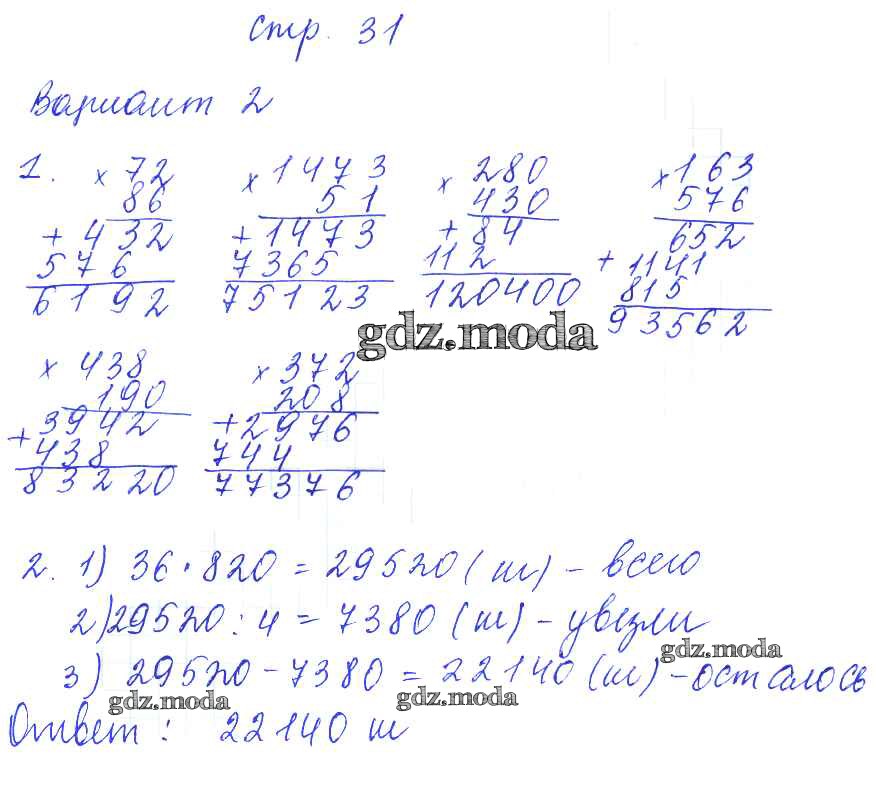 стр. 31
Вариант 2
1. × 72 × 1473 × 280 × 163
86 51 430 576
+ 432 + 1473 + 84 652
576 7365 112 + 1141
6192 75123 120400 815
93562
gdz.moda
× 438 × 372
190 208
+ 3942 + 2976
438 744
83220 77376
2. 1) 36 · 820 = 29520 (ш) - всего
2) 29520 : 4 = 7380 (ш) - увезли
gdz.moda
3) 29520 - 7380 = 22140 (ш) - осталось
gdz.moda gdz.moda
Ответ : 22140 ш